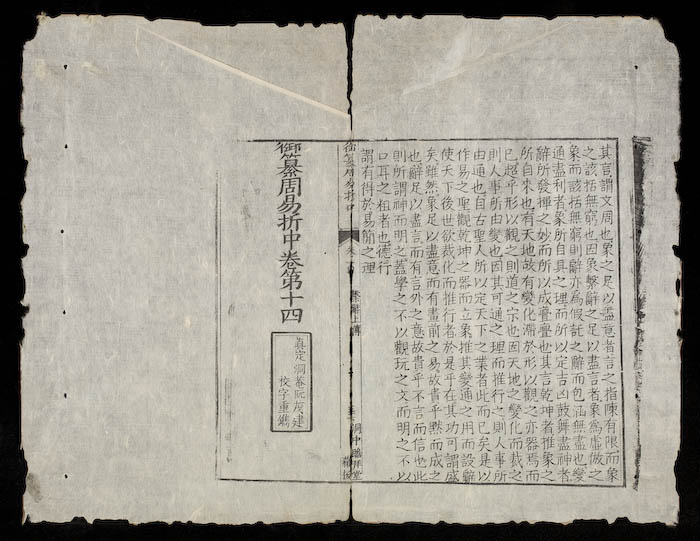 其言謂文周也象之足以盡意者言之指陳有限而象
之該括無窮也因象繫辭之足以盡言者象爲虛倣之
象而該括無窮則辭亦爲假託之辭而包涵無盡也變
通盡利者象所自具之理而所以定吉凶鼓舞盡神者
辭所發揮之妙而所以成亹亹也其言乾坤者推象之
所自來也有天地故有變化滯於形以觀之亦器焉而
已超乎形以觀之則道之宗也因天地之變化而裁之
則人事所由變也因其可通之理而推行之則人事所
由通也自古聖人所以定天下之業者此而已矣是以
作易之聖觀乾坤之器而立象推其變通之用而設辭
使天下後世欲裁化而推行者於是乎在其功可謂盛
矣雖然象足以盡意而有畫前之易故貴乎默而成之
也辭足以盡言而有言外之意故貴乎不言而信也此
則所謂神而明之蓋學之不以觀玩之文而明之不以
口耳之粗者也德行
謂有得於易簡之理
御纂周易折中
卷十四
繫辭上傳
洞中
堂
御纂周易折中卷第十四
眞定澗菴阮茂建
校字重鐫